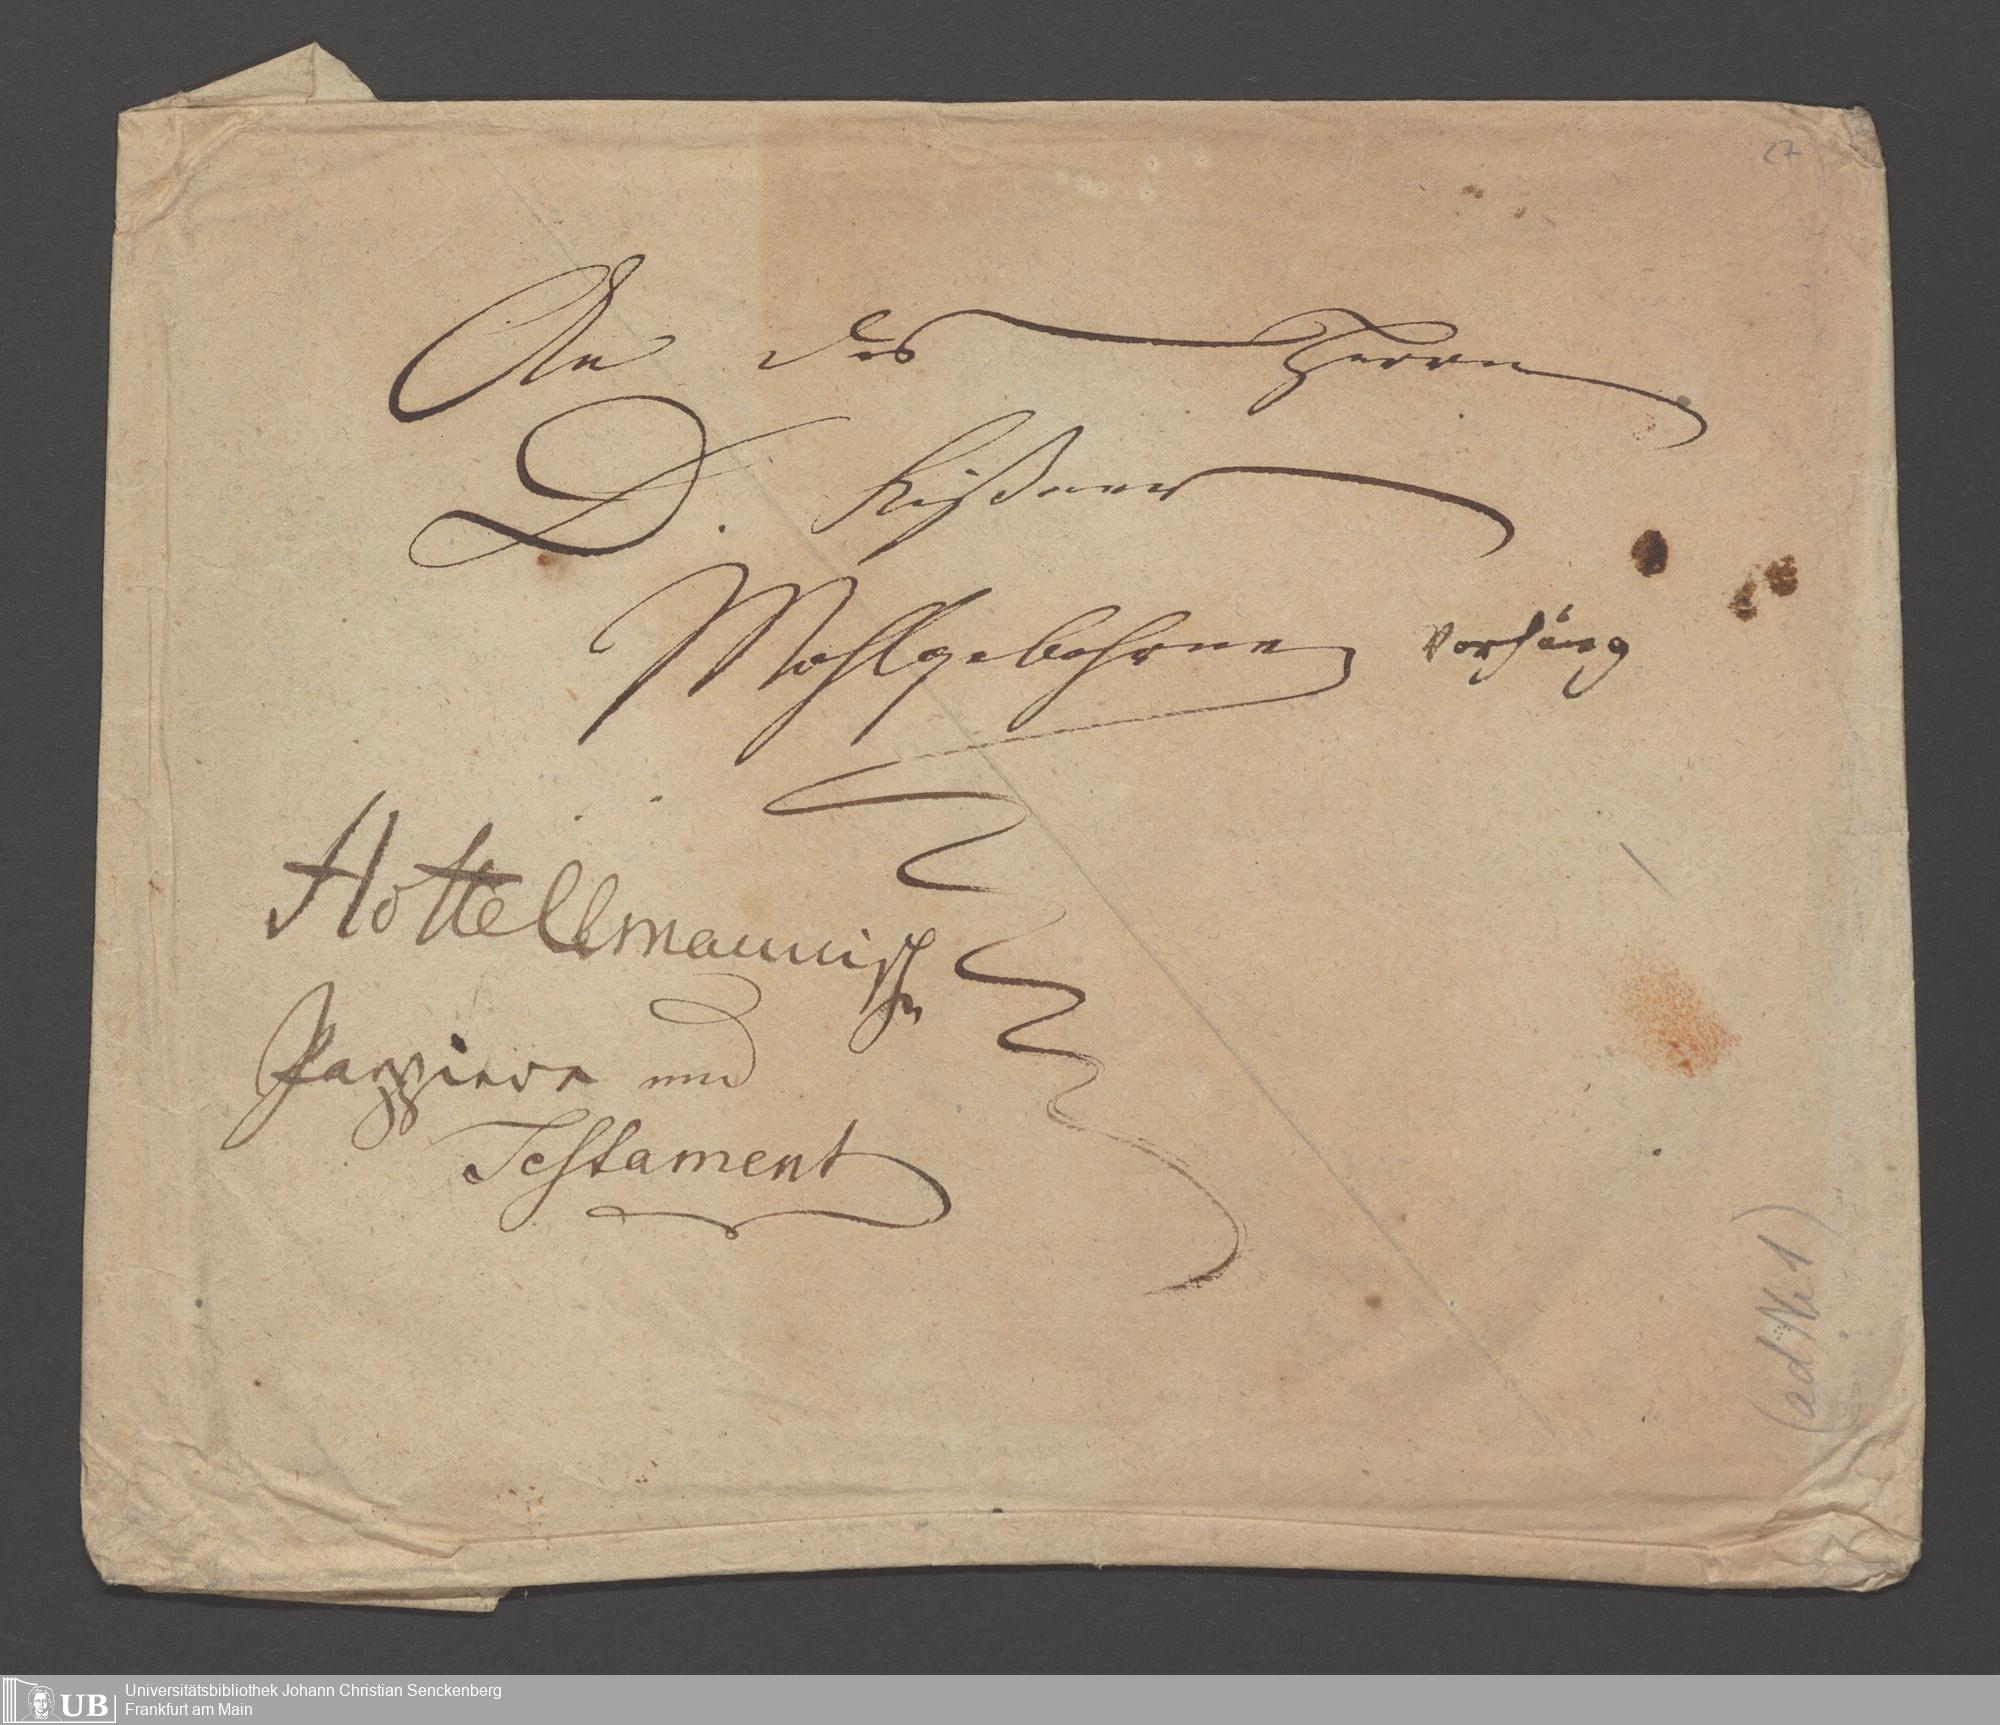 27
An des Herrn
D. Kißner
Wohlgebohrnen
Hottellmannische
Pappiere und
Testament
(ad Nr. 1)
UB
Universitätsbibliothek Johann Christian Senckenberg
Frankfurt am Main